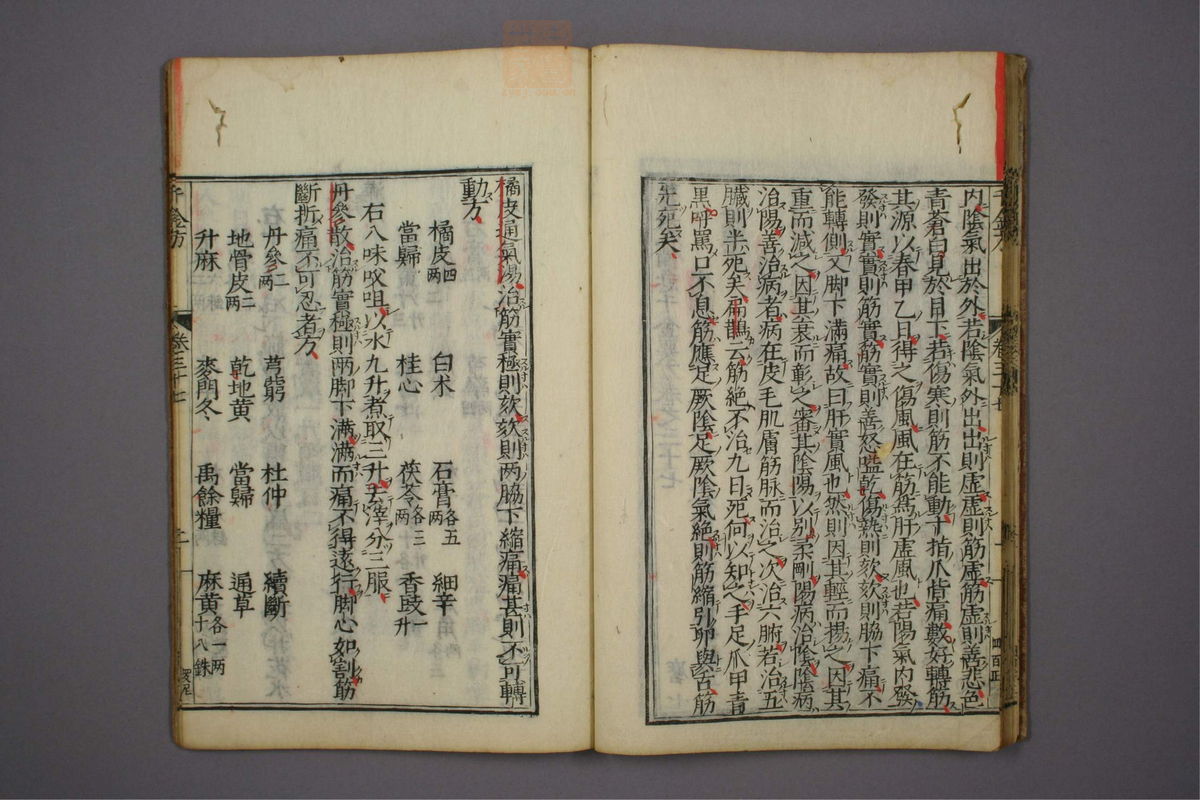 内陰氣出於外者陰氣外出出則虛虛則筋虛筋虛則善悲色
青蒼白見於目下若傷寒則筋不能動十指爪皆痛數好轉筋
其源以春甲乙日得之傷風風在筋為肝虛風也若陽氣内發
發則實實則筋實筋實則善怒嗌乾傷熱則欬欬則脇下痛不
能轉側又脚下滿痛故曰肝實風也然則因其輕而揚之因其
重而減之因其衰而彰之審其陰陽以別柔剛陽病治陰陰病
治陽善治病者病在皮毛肌膚筋脉而治之次治六腑若治五
臟則半死矣扁鵲云筋絶不治九日死何以知之手足爪甲青
黑呼罵口不息筋應足厥陰足厥陰氣絶則筋縮引卵與舌筋
先死矣
橘皮通氣湯治筋實極則欬欬則两脇下縮痛痛甚則不可轉
動方
橘皮四两 白术 石膏各五两 細辛
當歸 桂心 茯苓各三两 香豉一升
右八味㕮咀以水九升煮取三升去滓分三服
丹參散治筋實極則两脚下滿滿而痛不得遠行脚心如割筋
斷折痛不可忍者方
丹參三两 芎藭 杜仲 續斷
地骨皮二两 乾地黄 當歸 通草
升麻 麥門冬 禹餘糧 麻黄各一两十八銖
千金方 卷三十七 二